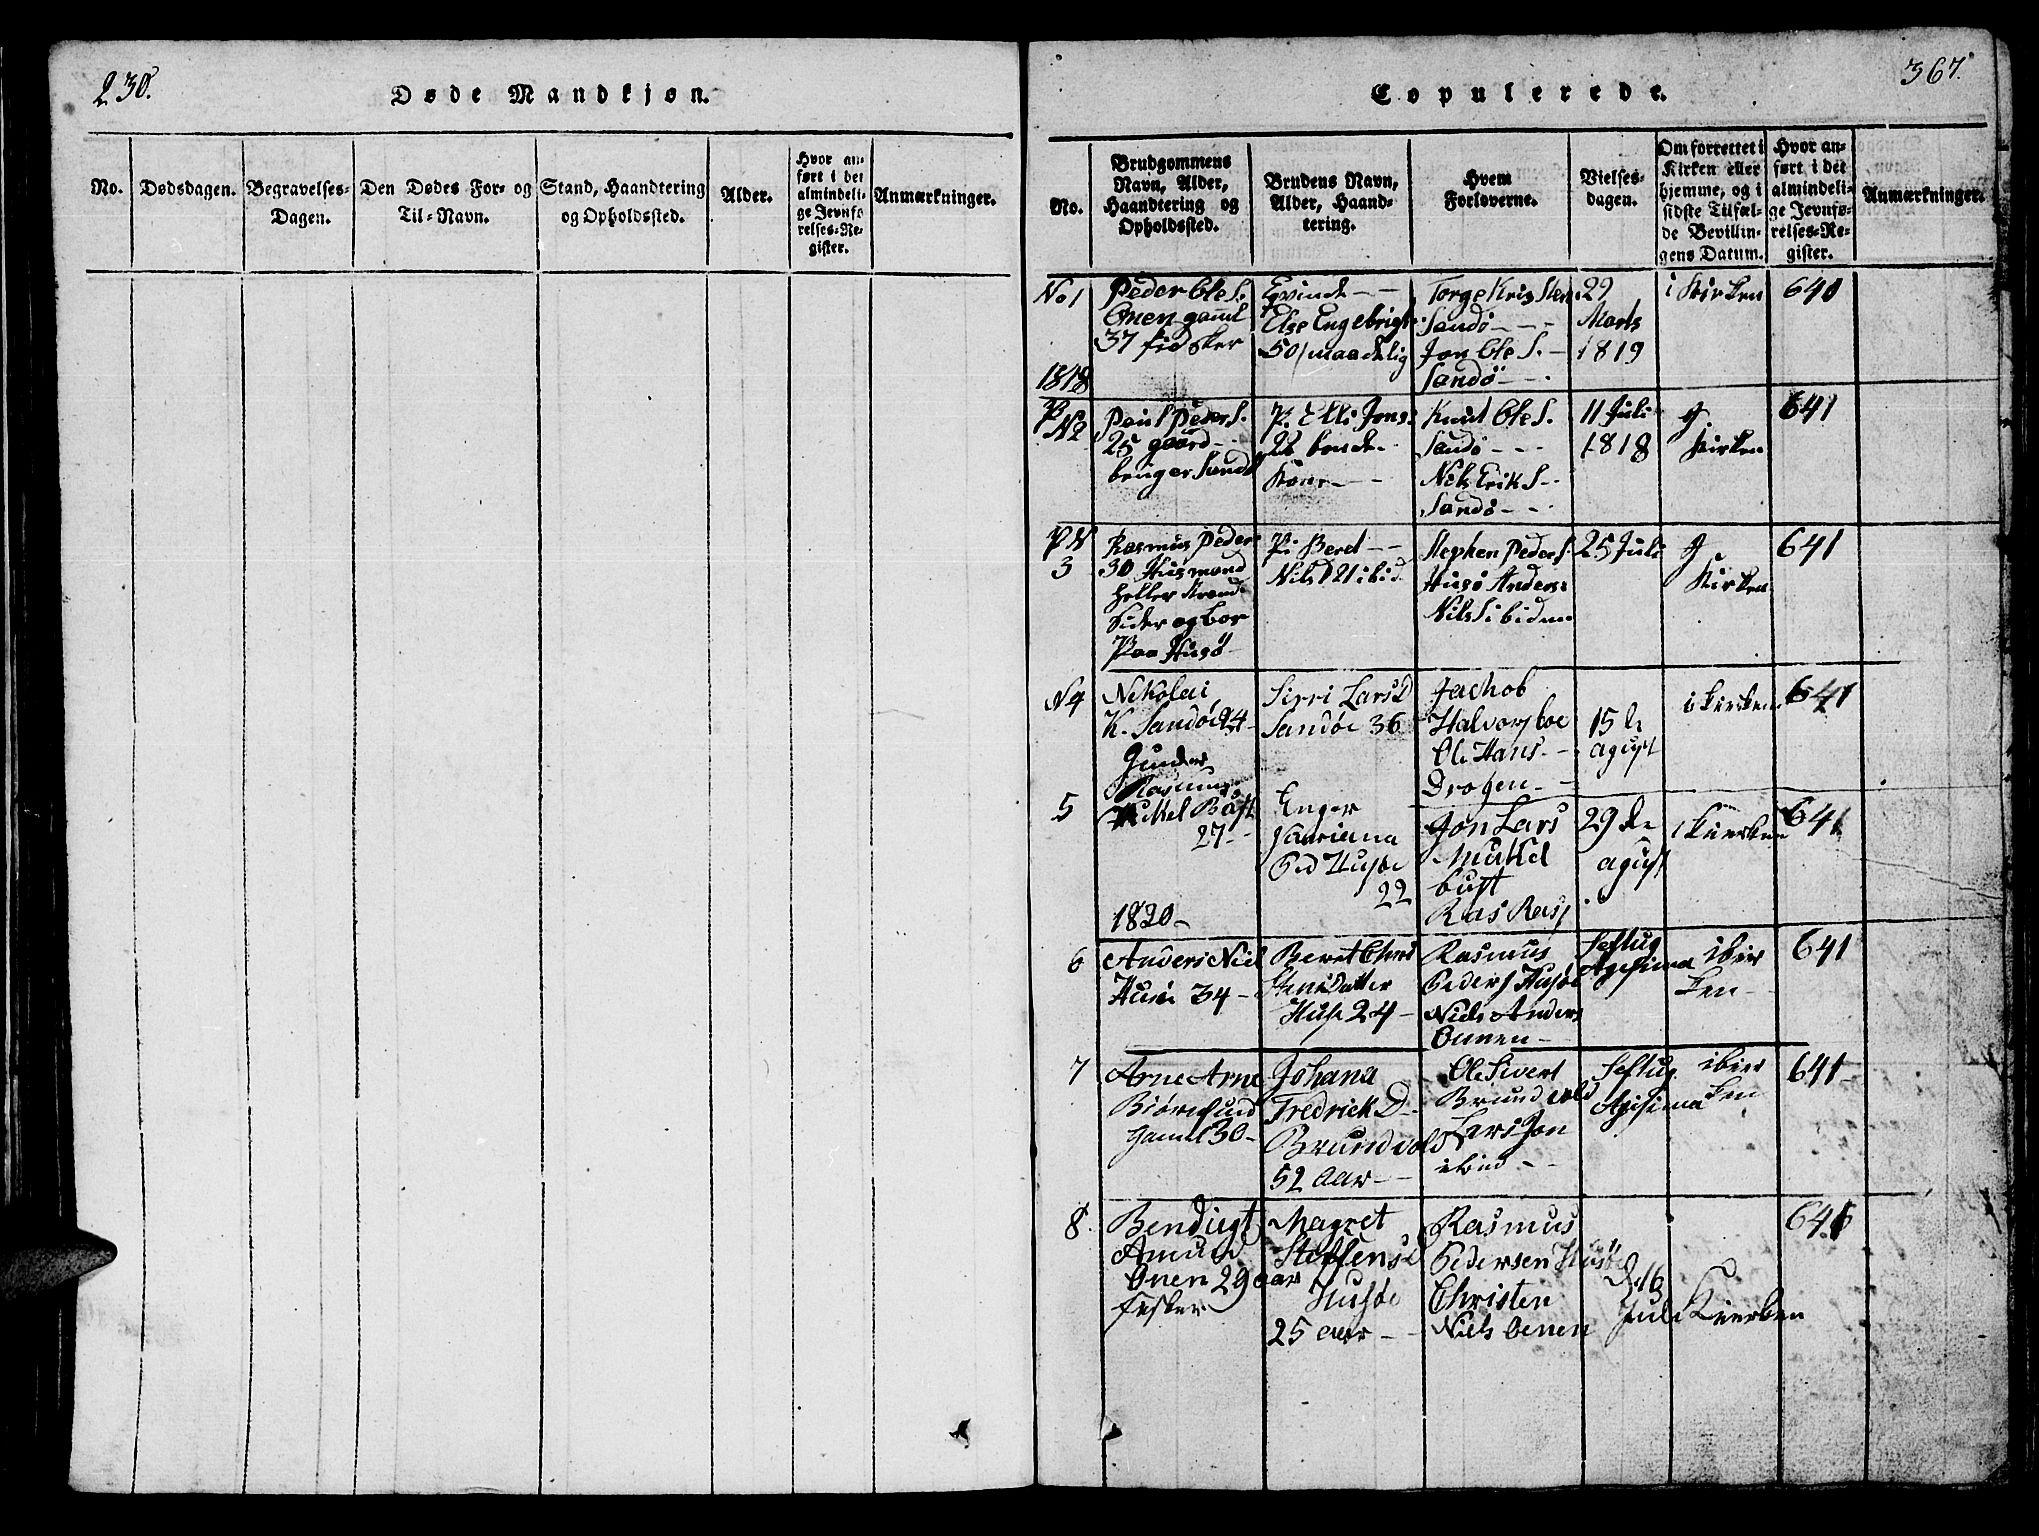 230.
Døde Mandkjøn.
No.
Dødsdagen.
Begravelses-
Dagen.
Den Dødes For- og
Til-Navn.
Stand, Haandtering
og Opholdssted.
Alder.
Hvor an-
ført i det
almindeli-
ge Jevnfø
relses-Re-
gister.
Anmærkninger.
367.
Copulerede.
No.
Brudgommens
Navn, Alder,
Haandtering og
Opholdssted.
Brudens Navn,
Alder, Haand-
tering.
Hvem
Forloverne.
Vielses-
dagen.
Om forrettet i
Kirken eller
hjemme, og i
sidste Tilfæl-
de Bevillin-
gens Datum.
Hvor an-
ført i det
almindeli-
ge Jevnfø-
relses-Re-
gister.
Anmærkninger.
No 1
1818
Peder Ole S.
Onen gaml
37 fidsker
Qvinde - -
Else Engebrigt
50
Torge Kristen
Sandö - - -
Jon Ole S. -
Sandö - -
29
Marts
1819
i Kirken
640
P
N2
Paul Peder S.
25 gaard
benger Sandö
P. Elli Jons
22 bonde
Kone - -
Knud Ole S.
Sandö - - -
Nils Erik S -
Sandö - -
11 Juli
1818
J
Kirken
641
P N
3
Rasmus Peder
30 Husmand
heller Strand
Sider og bor
Paa Husö
P. Beret - -
Nils D 21 ibid
Stephen Peder S.
Husö Anders
Nils S ibidem
25 Juli
J
Kirken
641
N4
Nikolai
K. Sandöe 24 -
Sirri Lars D
Sandöe 36
Jachob
Halvors boe
Ole Hans -
Drogen - -
15 de
agust
i kierken
641
5
Gunder
Rasmus
Mikkel Bust
27 -
1820 -
Enger
Mariana
Ped Husöe
22
Jon Lars
Mikkel
bust
Ras Ras
29 de
agust
i kierken
641
6
Anders Niel
Husöe 34 -
Beret Chri
stensdatter
Huse 24 -
Rasmus
Peders Husöe
Niels Anders
Onnen -
Seftug
Agesima
i kier
ken -
641
7
Arne Arne
Biörnsund
Gaml 30 -
Johana
Fredrick D -
Brundvold
52 aar - -
Ole Sivert
Brundvold
Lars Jon
ibid - -
Seftug
Agisima
i kier
ken
641
8
Bendigt
Amund
Onen 29 aar
fesker
Magret
Steffens D
Husöe
25 aar - -
Rasmus
Pedersen Husöe
Christen
Niels Oenen
D. 16
Juli
Kierken
641